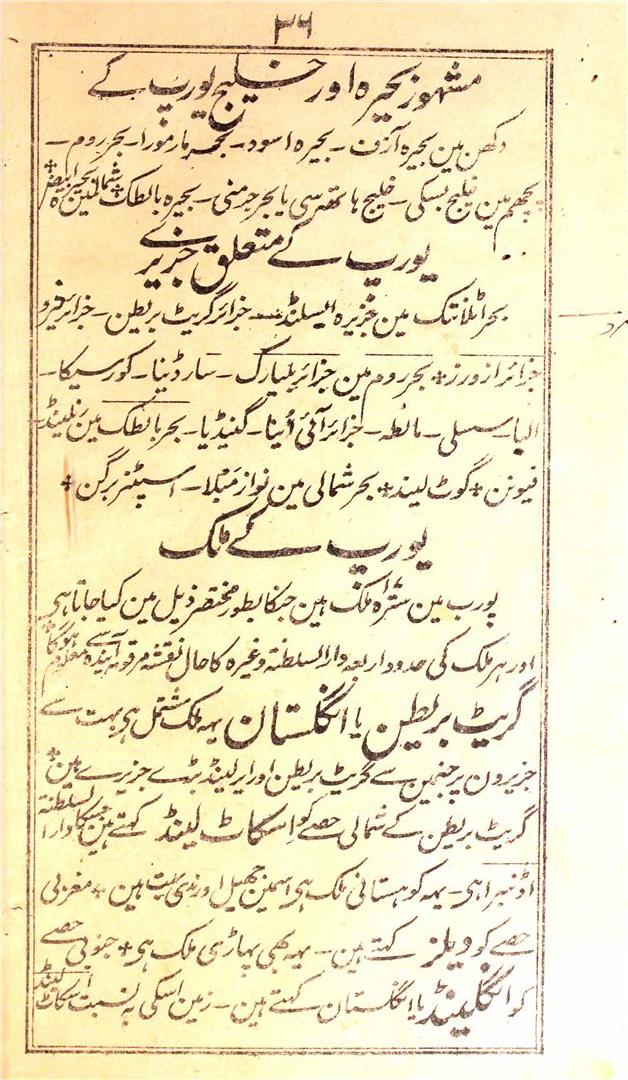 ۳۶
مشہور بحیرہ اور خلیج یورپ کے
دکھن مین بحیرہ آزف - بحیرہ اسود - بحیرہ مارمورا - بحر روم -
پچھم مین خلیج بسکی - خلیج یا بحر جرمنی - بحیرہ بالطک + شمال مین بحیرہ ابیض +
یورپ کے متعلق جزیرے
بحر اٹلانٹک مین جزیرہ ایسلنڈ - جزائر گریٹ بریطن - جزائر فیرو
جزائر ازورز + بحر روم مین جزائر بلیارک - سارڈینا - کورسیکا -
البا - سسلی - مالطہ - جزائر آئی اُینا - کنیڈیا - بحر بالطک مین زیلینڈ -
فیونن + گوٹ لینڈ + بحر شمالی مین نوازمبلا - اسپٹزبرگن +
یورپ کے ملک
یورپ مین سترہ ۱۷ ملک ہین جنکا بطور مختصر ذیل مین کیا جاتا ہی
اور ہر ملک کی حدود اربعہ دار السلطنۃ وغیرہ کا حال نقشہ مرقومہ آیندہ سے معلوم ہوگا +
گریٹ بریطن یا انگلستان یہہ ملک مشتمل ہی بہت سے
جزیرون پر جنمین سے گریٹ بریطن اور ایرلینڈ بڑے جزیرے ہین +
گریٹ بریطن کے شمالی حصے کو اسکاٹ لینڈ کہتے ہین جسکا دار السلطنۃ
اڈنبرا ہی - یہہ کوہستانی ملک ہی اسمین جھیل اور ندی بہت ہین + مغربی
حصے کو ویلز کہتے ہین - یہہ بھی پہاڑی ملک ہی + جنوبی حصے
کو انگلینڈ یا انگلستان کہتے ہین - زمین اسکی بہ نسبت اسکاٹ لینڈ